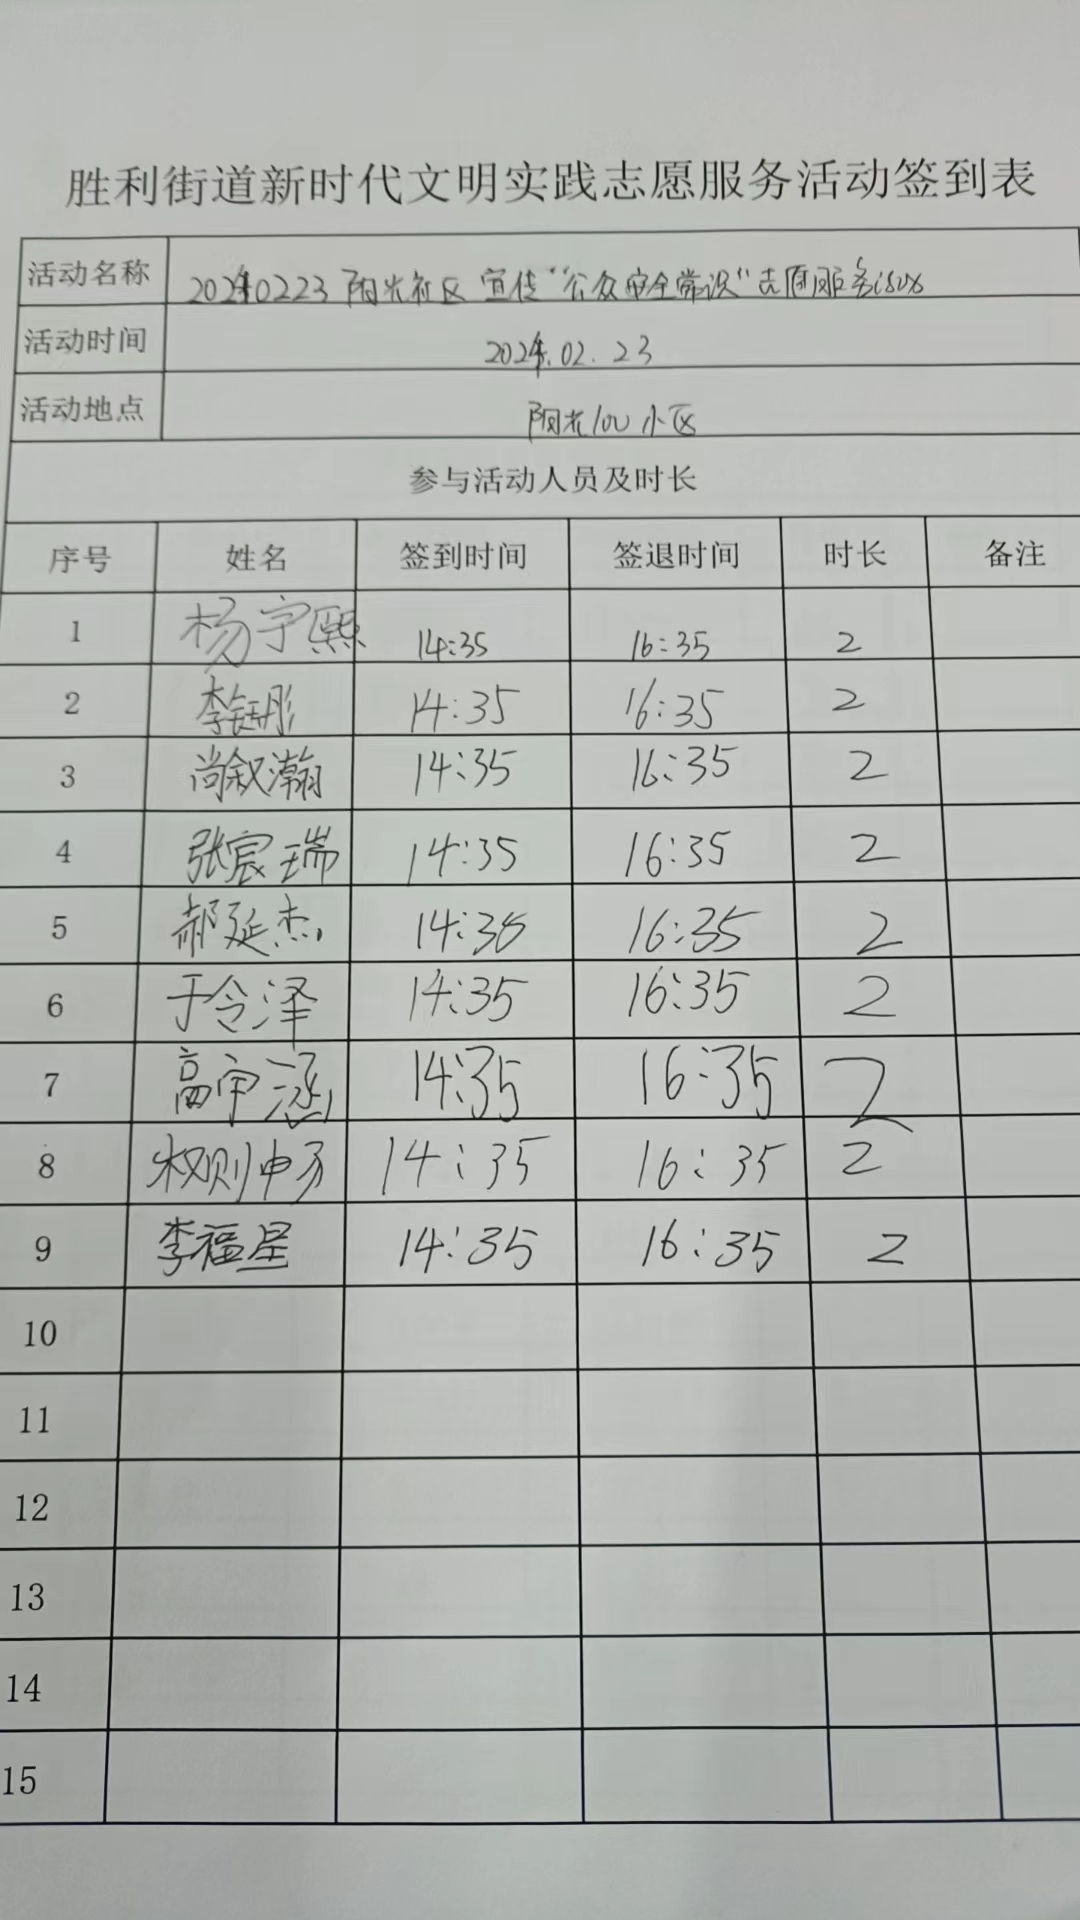 胜利街道新时代文明实践志愿服务活动签到表
活动名称 20240223 阳光社区 宣传“公众安全常识”志愿服务活动
活动时间 2024.02.23
活动地点 阳光100小区
参与活动人员及时长
序号 姓名 签到时间 签退时间 时长 备注
1 杨宇熙 14:35 16:35 2
2 李钰彤 14:35 16:35 2
3 尚叙瀚 14:35 16:35 2
4 张宸瑞 14:35 16:35 2
5 郝延杰 14:35 16:35 2
6 于令泽 14:35 16:35 2
7 14:35 16:35 2
8 14:35 16:35 2
9 李福星 14:35 16:35 2
10
11
12
13
14
15